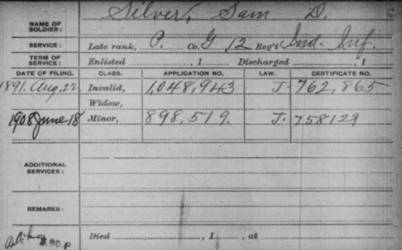 NAME OF SOLDIER: Silver, Sam D.
SERVICE: Late rank, P. Co. G 12 Reg't Ind. Inf.
TERM OF SERVICE: Enlisted , 1 Discharged , 1
DATE OF FILING. CLASS. APPLICATION NO. LAW. CERTIFICATE NO.
1891. Aug. 22 Invalid, 1,048,943 J. 762,865
Widow,
1908 June 18 Minor, 898,519. J. 758129
ADDITIONAL SERVICES:
REMARKS:
Died , 1 , at